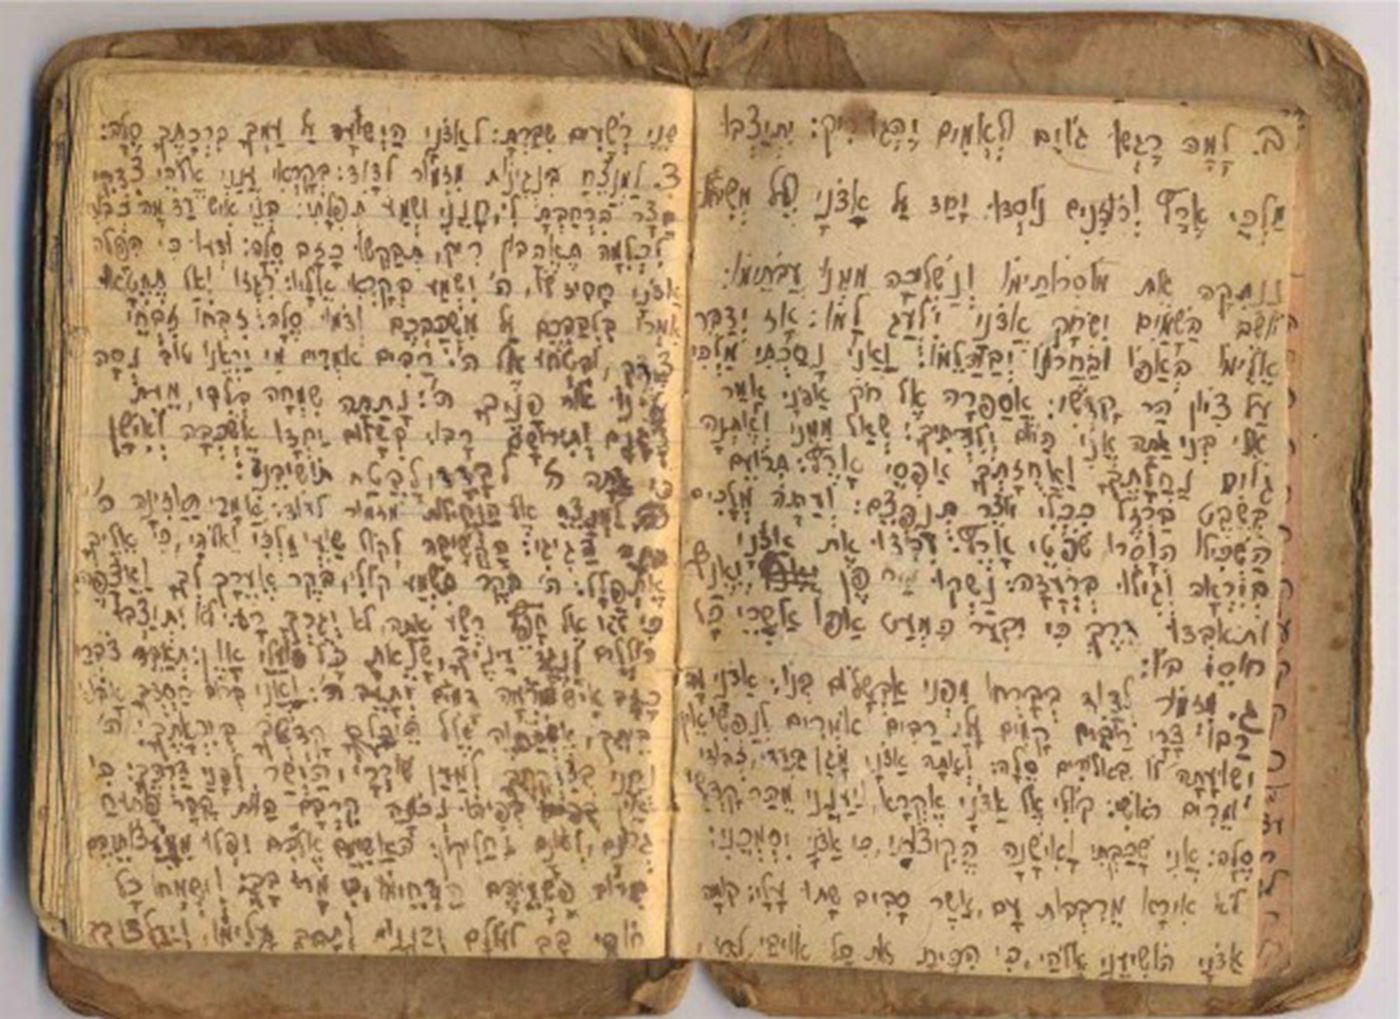 ב. למה רגשו גוים ולאמים יהגו ריק: יתיצבו
מלכי ארץ ורוזנים נוסדו יחד על אדני ועל משיחו
ננתקה את מוסרותימו ונשליכה ממנו עבתימו:
יושב בשמים ישחק אדני ילעג למו: אז ידבר
אלימו באפו ובחרונו יבהלמו: ואני נסכתי מלכי
על ציון הר קדשי: אספרה אל חק אדני אמר
אלי בני אתה אני היום ילדתיך: שאל ממני ואתנה
גוים נחלתך ואחזתך אפסי ארץ: תרועם
בשבט ברזל ככלי יוצר תנפצם: ועתה מלכים
השכילו הוסרו שפטי ארץ: עבדו את אדני
ביראה וגילו ברעדה: נשקו פן יאנף
ותאבדו דרך כי יבער כמעט אפו אשרי כל
חוסי בו:
ג. מזמור לדוד בברחו מפני אבשלום בנו: אדני מה
רבו צרי רבים קמים עלי רבים אומרים לנפשי אין
ישועתה לו באלהים סלה: ואתה אדני מגן בעדי, כבודי
ומרים ראשי: קולי אל אדני אקרא, ויענני מהר קדשו
סלה: אני שכבתי ואישנה הקיצותי, כי אדני יסמכני:
לא אירא מרבבות עם, אשר סביב שתו עלי: קומה
אדני הושיעני אלהי, כי הכית את כל אויבי לחי,
שני רשעים שברת: לאדני הישועה על עמך ברכתך סלה:
ד. למנצח בנגינות מזמור לדוד: בקראי ענני אלהי צדקי
בצר הרחבת לי, חנני ושמע תפלתי: בני איש עד מה כבודי
לכלמה תאהבון ריק, תבקשו כזב סלה: ודעו כי הפלה
אדני חסיד לו, ה' ישמע בקראי אליו: רגזו ואל תחטאו
אמרו בלבבכם על משכבכם ודמו סלה: זבחו זבחי
צדק, ובטחו אל ה': רבים אמרים מי יראנו טוב נסה
עלינו אור פניך ה': נתתה שמחה בלבי, מעת
דגנם ותירושם רבו: בשלום יחדו אשכבה ואישן
כי אתה ה' לבדד לבטח תושיבני:
למנצח אל הנחילות מזמור לדוד: אמרי האזינה ה'
בינה הגיגי: הקשיבה לקול שועי מלכי ואלהי, כי אליך
אתפלל: ה' בקר תשמע קולי, בקר אערך לך ואצפה:
כי לא אל חפץ רשע אתה, לא יגרך רע: לא יתיצבו
הוללים לנגד עיניך, שנאת כל פועלי און: תאבד דברי
כזב, איש דמים יתעב ה': ואני ברב חסדך אבוא
ביתך, אשתחוה אל היכל קדשך ביראתך: ה'
נחני בצדקתך למען שוררי, הושר לפני דרכך: כי
אין בפיהו נכונה קרבם הוות קבר פתוח
גרונם, לשונם יחליקון: האשימם אלהים יפלו ממעצותיהם
ברוב פשעיהם הדיחמו, כי מרו בך: וישמחו כל
חוסי בך לעולם